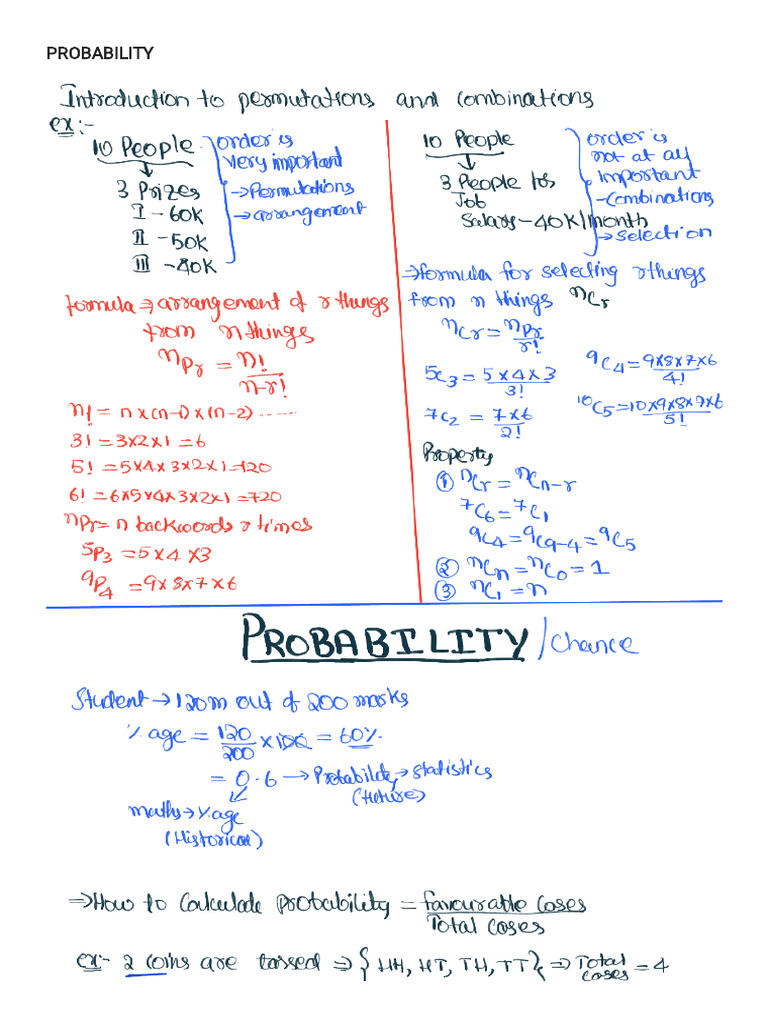 PROBABILITY
Introduction to permutations and combinations
ex:-
10 People
↓
3 Prizes
I - 60K
II - 50K
III - 40K
order is
very important
→ Permutations
→ arrangement
formula ⇒ arrangement of r things
from n things
nPr = n!
n-r!
n! = n x (n-1) x (n-2) ......
3! = 3x2x1 = 6
5! = 5x4x3x2x1 = 120
6! = 6x5x4x3x2x1 = 720
nPr = n backwords r times
5P3 = 5x4x3
9P4 = 9x8x7x6
10 People
↓
3 People for
Job
Salary - 40K/month
order is
not at all
important
- Combinations
→ selection
⇒ formula for selecting r things
from n things nCr
nCr = nPr
r!
5C3 = 5x4x3
3!
9C4 = 9x8x7x6
4!
7C2 = 7x6
2!
10C5 = 10x9x8x7x6
5!
Property
① nCr = nCn-r
7C6 = 7C1
9C4 = 9C9-4 = 9C5
② nCn = nC0 = 1
③ nC1 = n
PROBABILITY / Chance
Student → 120m out of 200 marks
% age = 120 x 100 = 60%
200
= 0.6 → Probability → statistics
(future)
maths → % age
(Historical)
⇒ How to Calculate probability = favourable cases
Total cases
ex:- 2 coins are tossed ⇒ {HH, HT, TH, TT} ⇒ Total cases = 4